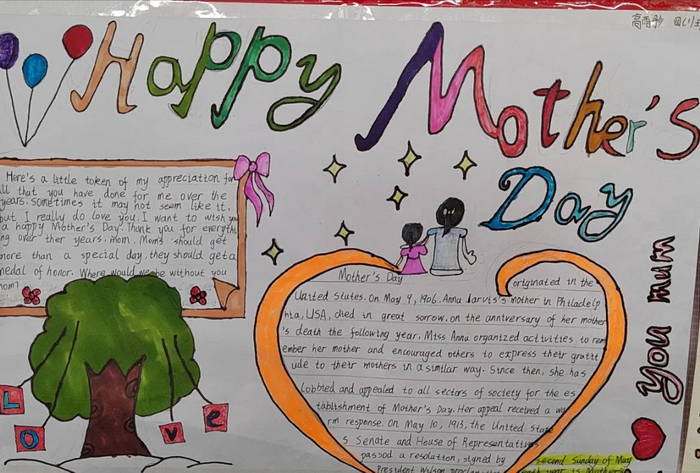 Happy Mother's
Day
Here's a little token of my appreciation for
all that you have done for me over the
years. Sometimes it may not seem like it,
but I really do love you. I want to wish you
a happy Mother's Day. Thank you for everything
over ther years, mom. Moms should get
more than a special day, they should get a
medal of honor. Where would me be without you
mom!
Mother's Day originated in the
United States. On May 9, 1906, Anna Jarvis's mother in Philadelp
hia, USA, died in great sorrow. on the anntversary of her mother
's death the following year, Miss Anna organized activities to rem
ember her mother and encouraged others to express their gratit
ude to their mothers in a similar way. Since then, she has
lobbied and appealed to all sectors of society for the es
tablishment of Mother's Day. Her appeal received a wa
rm response. On May 10, 1913, the United State
s Senate and House of Representatives
passed a resolution, signed by
President Wilson
second Sunday of May
each year is Mother's
L
O
v
e
you mum